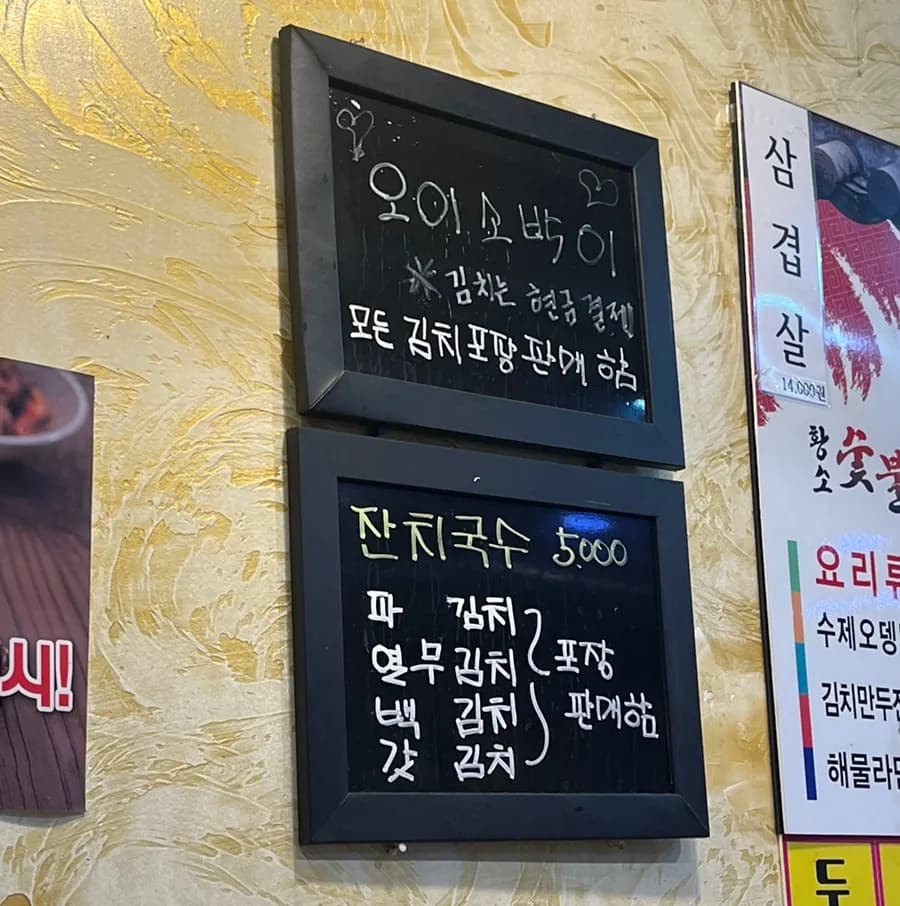 오이소박이
※김치는 현금결제
모든 김치포장판매 함
잔치국수 5.000
파 김치
열무김치
백 김치
갓 김치
포장
판매함
삼겹살
14.000원
황소
숯불
요리류
수제오뎅
김치만두전
해물라면
시!
두